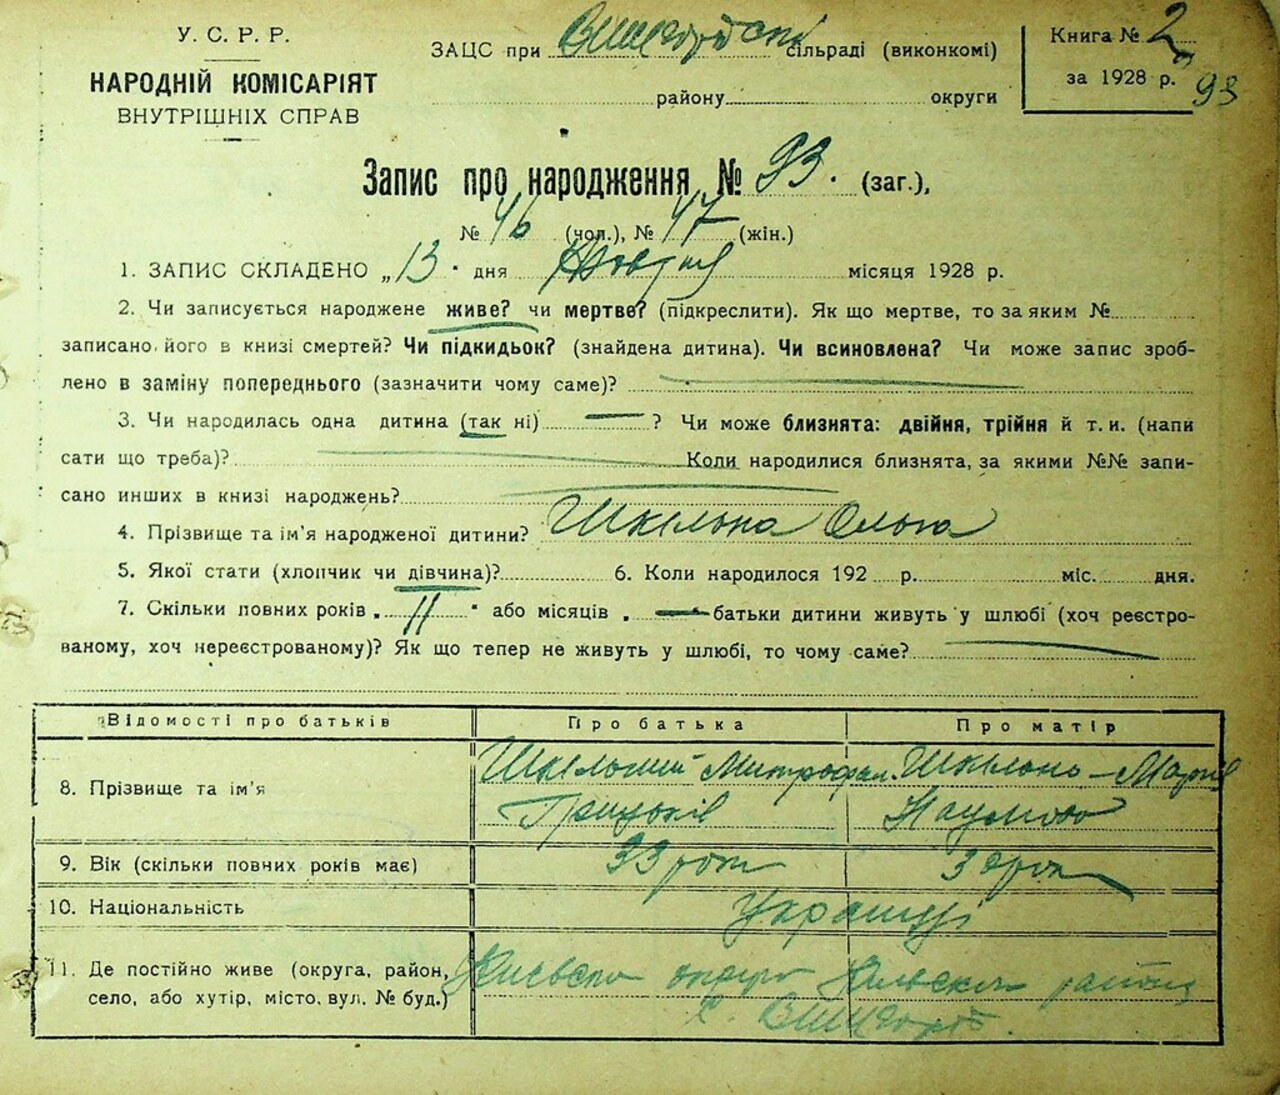 У. С. Р. Р.
НАРОДНІЙ КОМІСАРІЯТ
ВНУТРІШНІХ СПРАВ
ЗАЦС при сільраді (виконкомі)
району округи
Книга № 2
за 1928 р.
93
Запис про народження № 93. (заг.),
№ 46 (чол.), № 47 (жін.)
1. ЗАПИС СКЛАДЕНО „13" дня Жовтня місяця 1928 р.
2. Чи записується народжене живе? чи мертве? (підкреслити). Як що мертве, то за яким №
записано його в книзі смертей? Чи підкидьок? (знайдена дитина). Чи всиновлена? Чи може запис зроб-
лено в заміну попереднього (зазначити чому саме)?
3. Чи народилась одна дитина (так ні) — ? Чи може близнята: двійня, трійня й т. и. (напи
сати що треба)? Коли народилися близнята, за якими №№ запи-
сано инших в книзі народжень?
4. Прізвище та ім'я народженої дитини? Шкільна Ольга
5. Якої стати (хлопчик чи дівчина)? 6. Коли народилося 192 р. міс. дня.
7. Скільки повних років „ 11 " або місяців „ — батьки дитини живуть у шлюбі (хоч реєстро-
ваному, хоч нереєстрованому)? Як що тепер не живуть у шлюбі, то чому саме?
Відомості про батьків Про батька Про матір
8. Прізвище та ім'я Шкільний Митрофан Шкільна – Марія
Грицьків Наумова
9. Вік (скільки повних років має) 33 рок
10. Національність Українці
11. Де постійно живе (округа, район, Київська округа район
село, або хутір, місто, вул. № буд.) с.